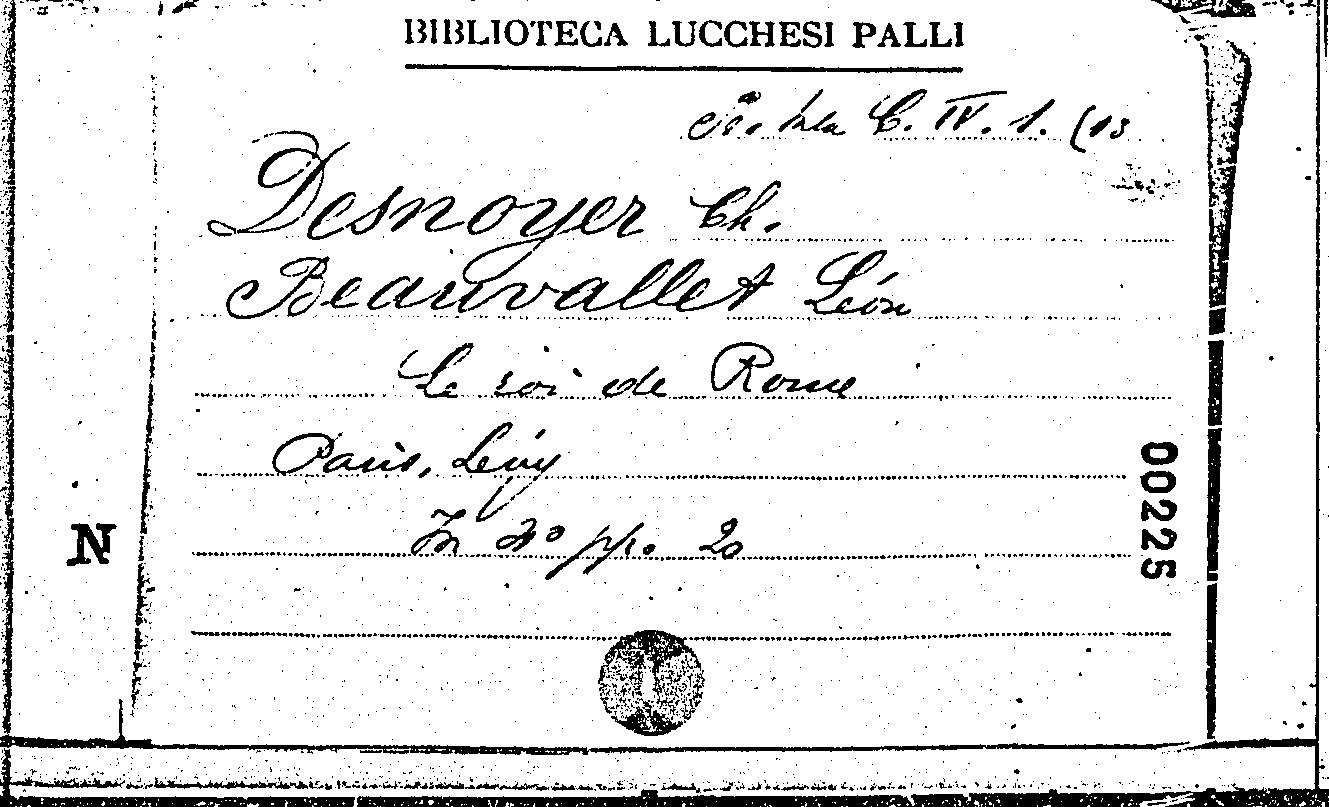 BIBLIOTECA LUCCHESI PALLI
C. IV. 1. (13
Desnoyer Ch.
Beauvallet Léon
Le roi de Rome
Paris, Lévy
In 4º pp. 20
00225
N